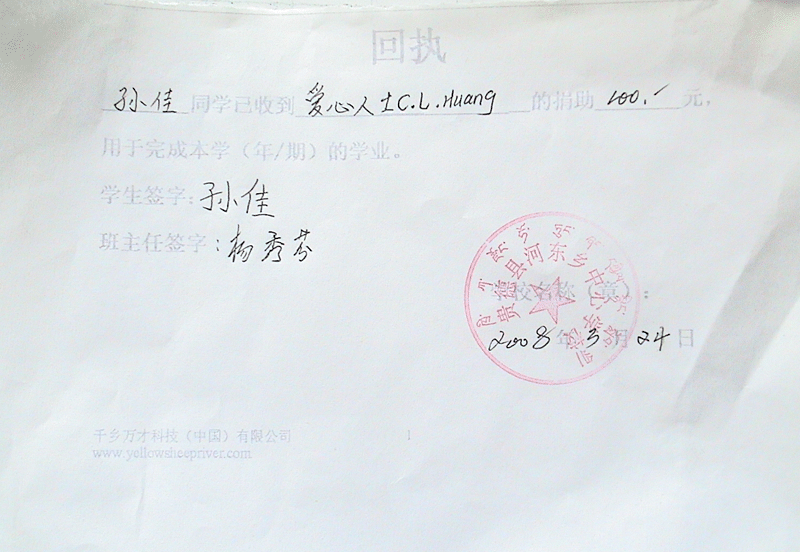 回执
孙佳同学已收到爱心人士C.L.Huang的捐助100.-元,
用于完成本学（年/期）的学业。
学生签字:孙佳
班主任签字:杨秀芬
贵德县河东乡中心学校
学校名称（章）:
2008年3月24日
千乡万才科技（中国）有限公司 1
www.yellowsheepriver.com